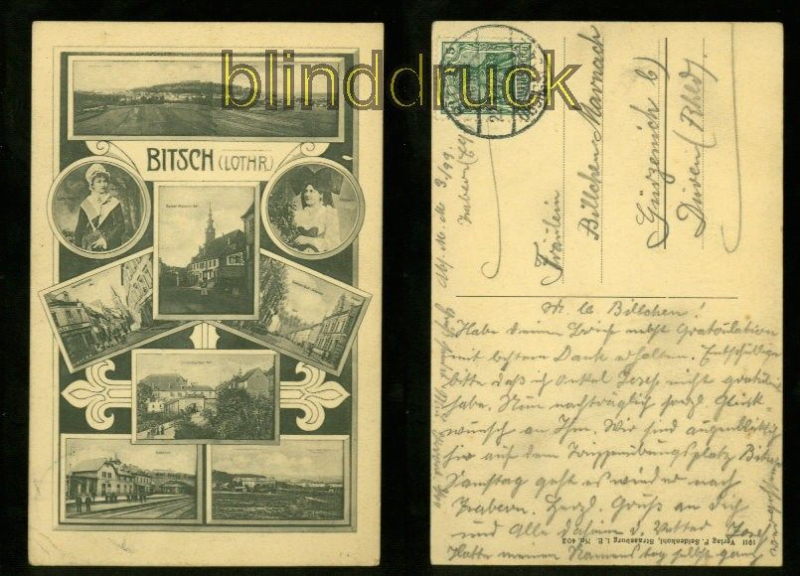 blinddruck
BITSCH (LOTHR.)
Fräulein
Billchen Marnach
Gürzenich b/
Düren (Rhld).
Billchen!
Habe deinen Brief nebst Gratulation
mit bestem Dank erhalten. Entschuldige
bitte daß ich Onkel Josef nicht gratuliert
habe. Nun nachträglich herzl. Glück-
wunsch an Ihn. Wir sind augenblicklich
hier auf dem Truppenübungsplatz Bitsch
Samstag geht es wieder nach
Zabern. Herzl. Gruß an Dich
und Alle daheim d. Vetter Josef
Hatte meinen Namenstag selbst ganz
vergessen
1911 Verlag F. Seidenkohl, Strassburg i. E. No. 403